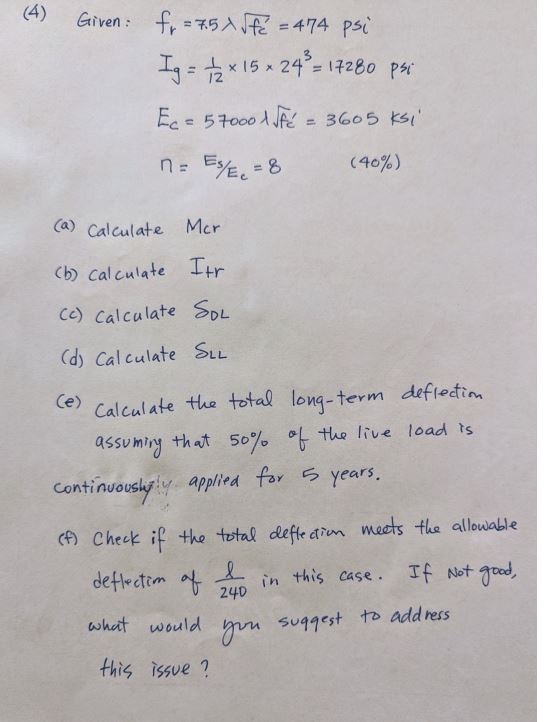 (4) Given: fr = 7.5 λ √fc' = 474 psi
Ig = 1/12 × 15 × 24³ = 17280 psi
Ec = 57000 λ √fc' = 3605 ksi
n = Es/Ec = 8 (40%)
(a) Calculate Mcr
(b) Calculate Itr
(c) Calculate SDL
(d) Calculate SLL
(e) Calculate the total long-term deflection
assuming that 50% of the live load is
continuously applied for 5 years.
(f) Check if the total deflection meets the allowable
deflection of l/240 in this case. If Not good,
what would you suggest to address
this issue?